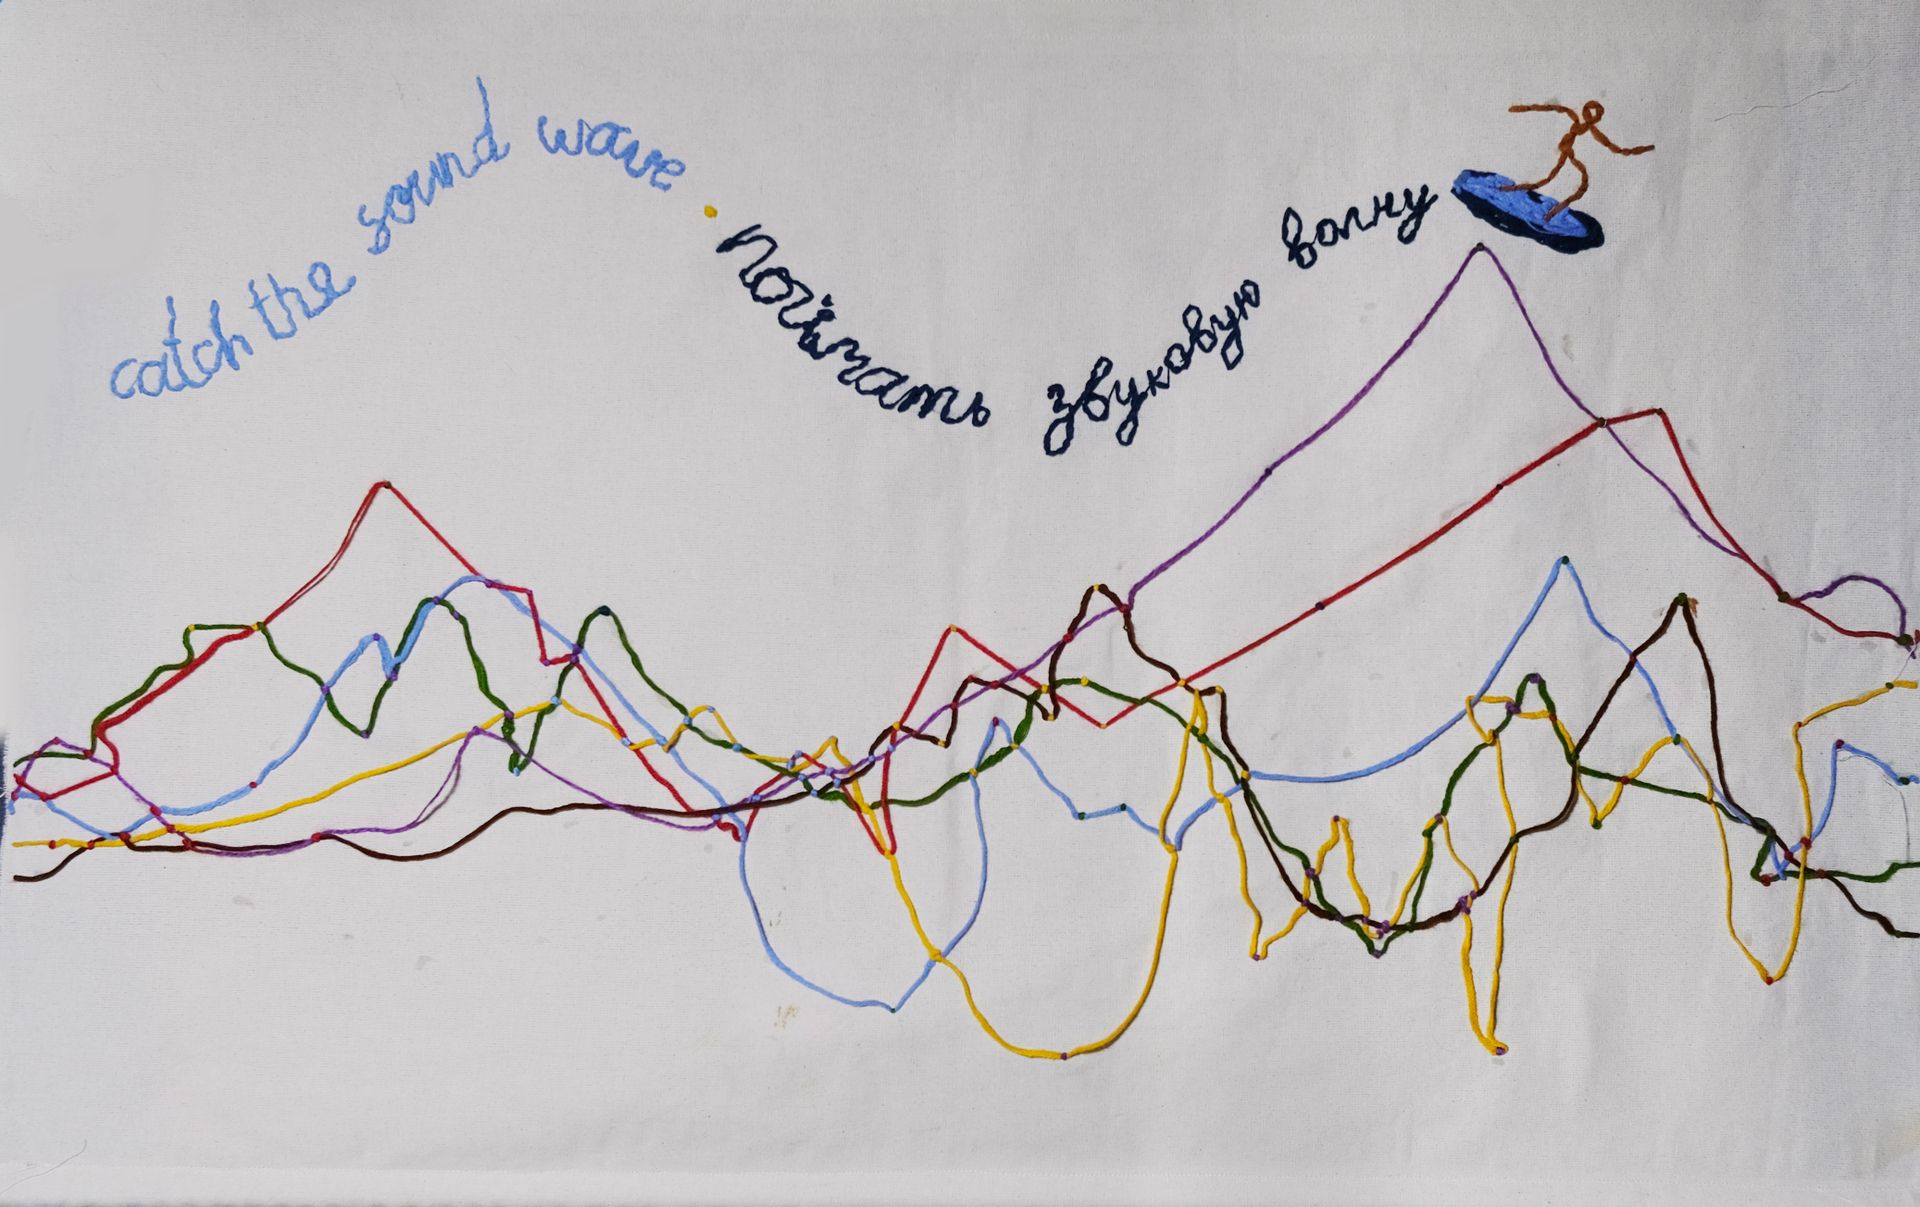 catch the sound wave
поймать звуковую волну